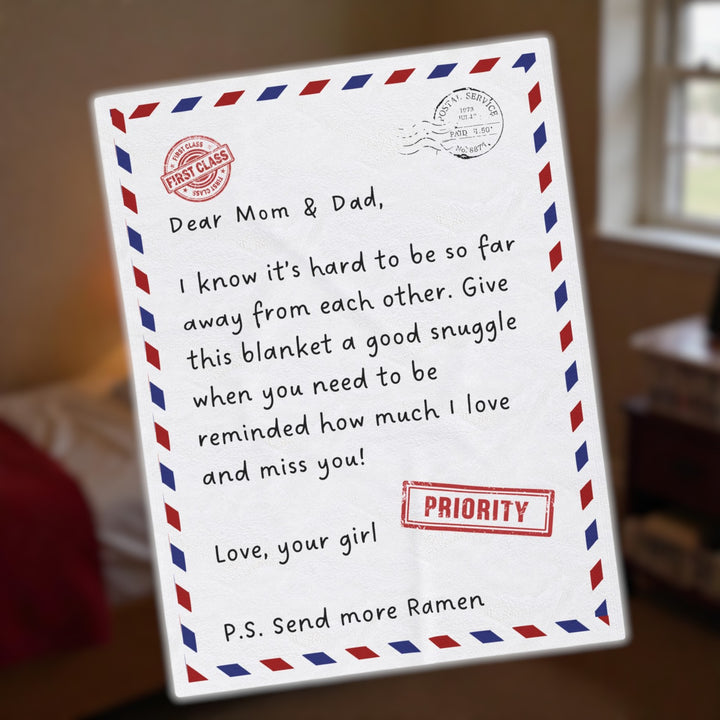 POSTAL SERVICE
1973
PAID
No. 8874
FIRST CLASS
FIRST CLASS
FIRST CLASS
Dear Mom & Dad,
I know it's hard to be so far
away from each other. Give
this blanket a good snuggle
when you need to be
reminded how much I love
and miss you!
PRIORITY
Love, your girl
P.S. Send more Ramen